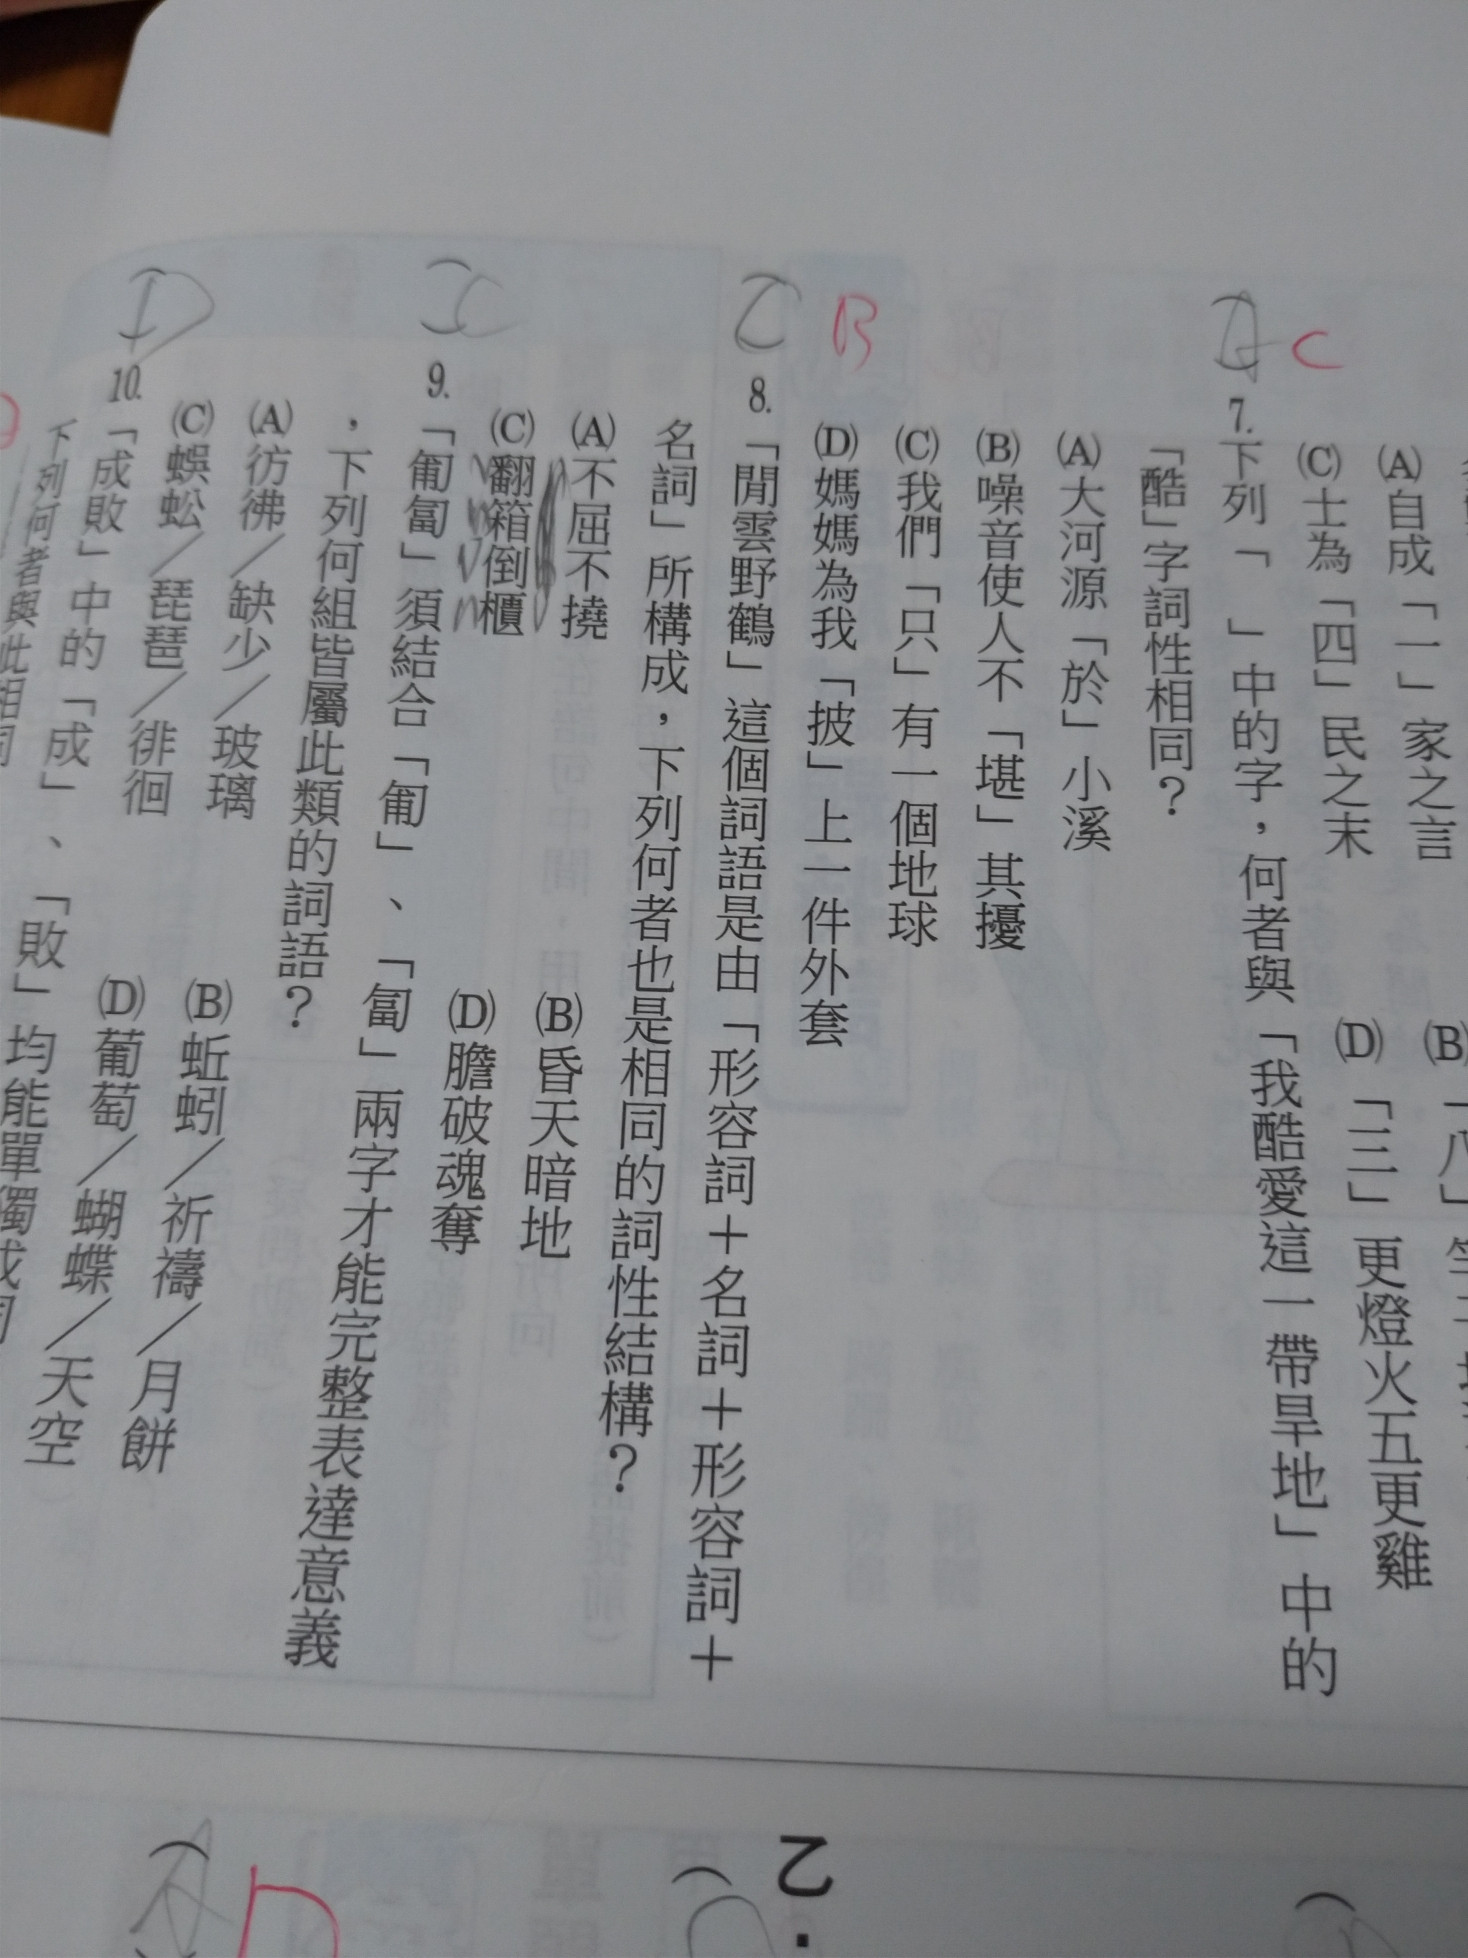 (A)自成「一」家之言
(B)「八」
(C)士為「四」民之末
(D)「三」更燈火五更雞
A C
7.下列「　」中的字，何者與「我酷愛這一帶旱地」中的
「酷」字詞性相同？
(A)大河源「於」小溪
(B)噪音使人不「堪」其擾
(C)我們「只」有一個地球
(D)媽媽為我「披」上一件外套
C B
8.「閒雲野鶴」這個詞語是由「形容詞＋名詞＋形容詞＋
名詞」所構成，下列何者也是相同的詞性結構？
(A)不屈不撓
(B)昏天暗地
(C)翻箱倒櫃
(D)膽破魂奪
C
9.「匍匐」須結合「匍」、「匐」兩字才能完整表達意義
，下列何組皆屬此類的詞語？
(A)彷彿／缺少／玻璃
(B)蚯蚓／祈禱／月餅
(C)蜈蚣／琵琶／徘徊
(D)葡萄／蝴蝶／天空
D
10.「成敗」中的「成」、「敗」均能單獨成詞
下列何者與此相同
乙.
A D